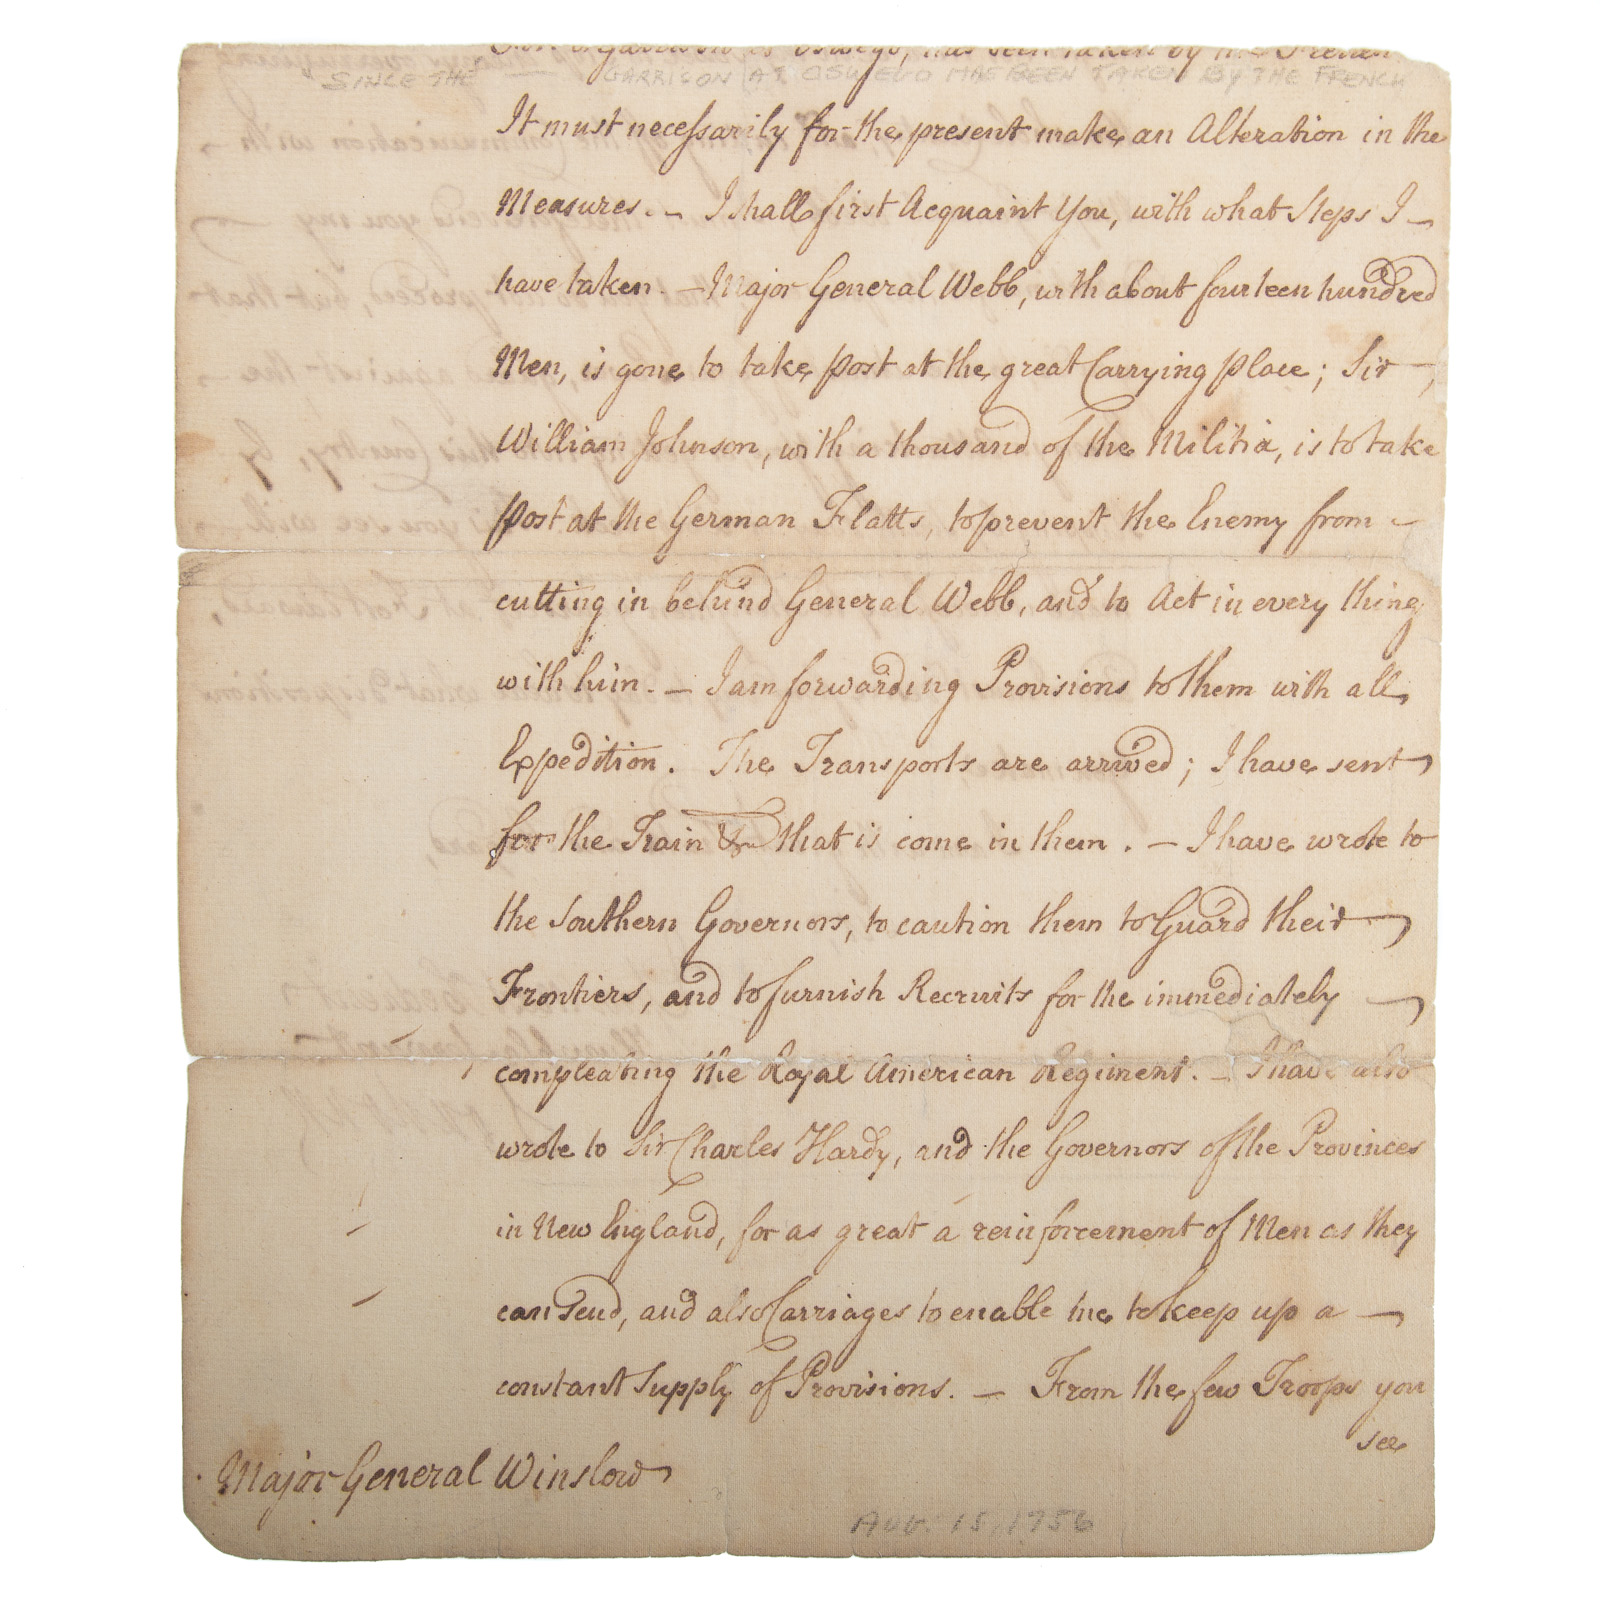 Garrison at Oswego, has been taken by the French
SINCE THE GARRISON AT OSWEGO HAS BEEN TAKEN BY THE FRENCH
It must necessarily for the present make an Alteration in the
Measures. – I shall first Acquaint You, with what Steps I –
have taken. – Major General Webb, with about fourteen hundred
Men, is gone to take post at the great Carrying place; Sir –
William Johnson, with a thousand of the Militia, is to take
post at the German Flatts, to prevent the Enemy from –
cutting in behind General Webb, and to Act in every thing
with him. – I am forwarding Provisions to them with all
Expedition. The Transports are arrived; I have sent
for the Train & that is come in them. – I have wrote to
the Southern Governors, to caution them to Guard their
Frontiers, and to furnish Recruits for the immediately
compleating the Royal American Regiment. – I have also
wrote to Sir Charles Hardy, and the Governors of the Provinces
in New England, for as great a reinforcement of Men as they
can Send, and also Carriages to enable me to keep up a –
constant Supply of Provisions. – From the few Troops you
see
Major General Winslow
AUG. 15, 1756